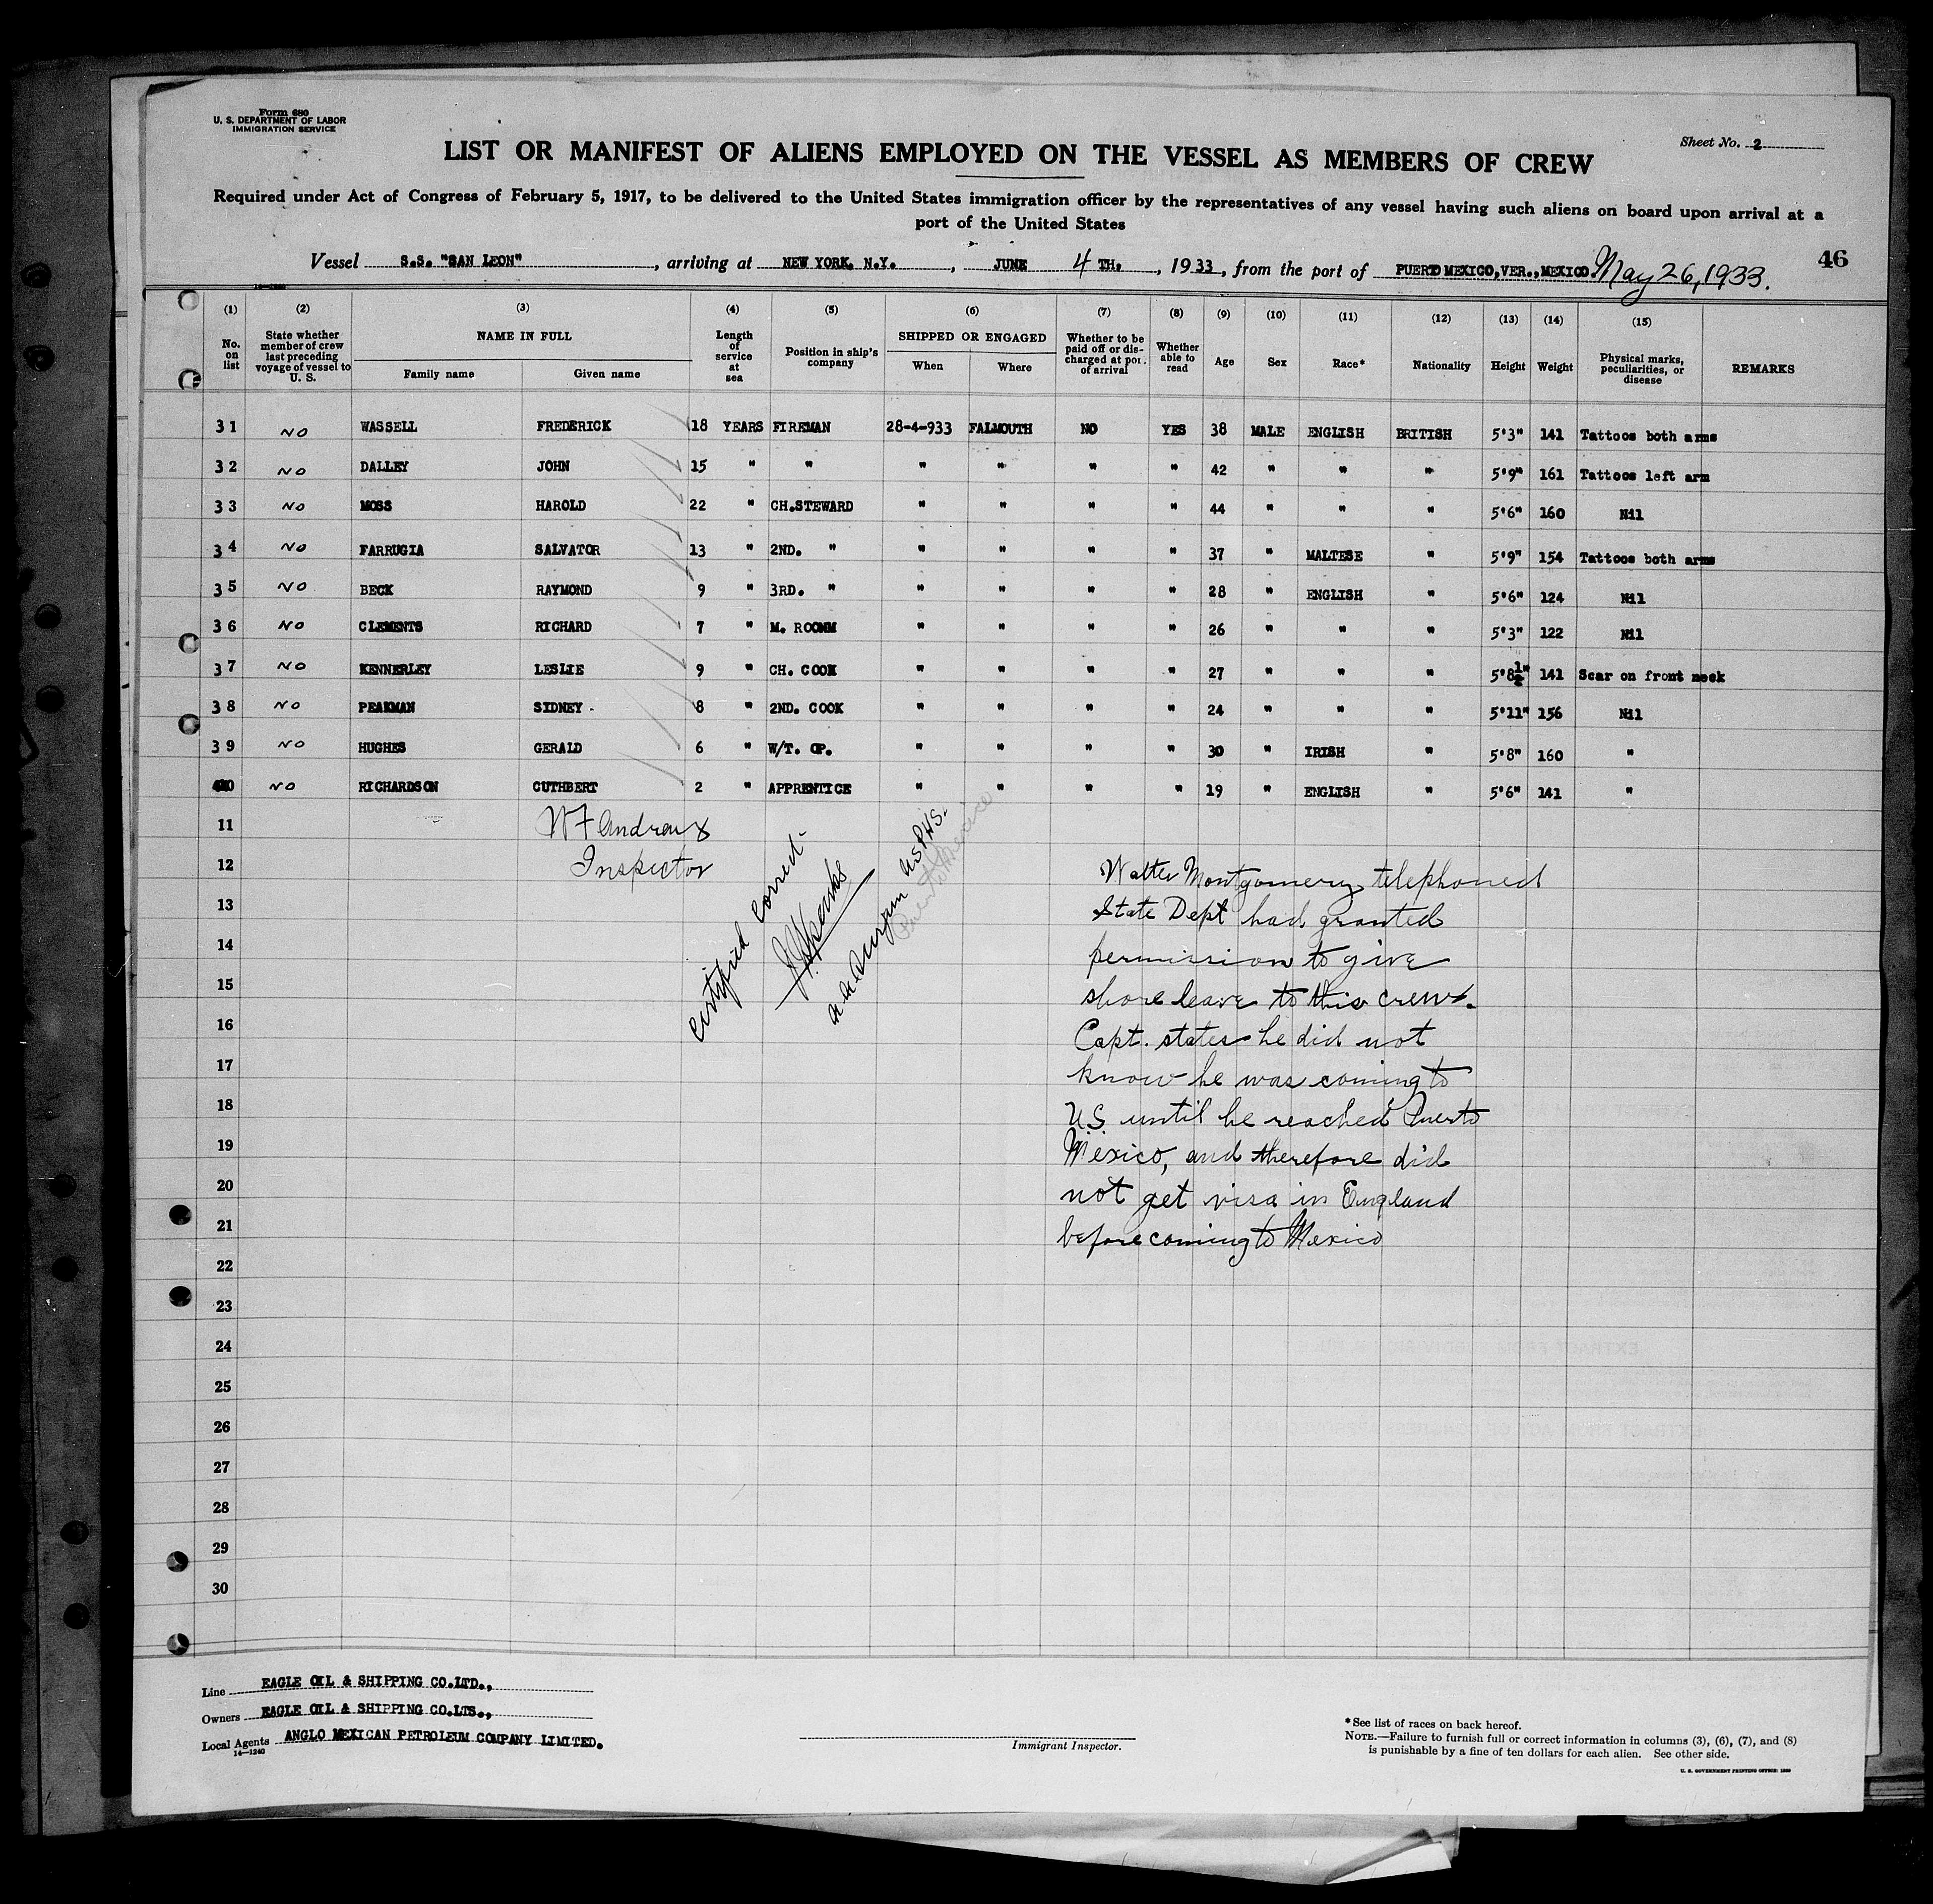 Form 680
U. S. DEPARTMENT OF LABOR
IMMIGRATION SERVICE
Sheet No. 2
LIST OR MANIFEST OF ALIENS EMPLOYED ON THE VESSEL AS MEMBERS OF CREW
Required under Act of Congress of February 5, 1917, to be delivered to the United States immigration officer by the representatives of any vessel having such aliens on board upon arrival at a
port of the United States
Vessel S.S. "SAN LEON", arriving at NEW YORK, N.Y., JUNE 4 TH., 1933, from the port of PUERTO MEXICO, VER., MEXICO. May 26, 1933.
46
14—1240
(1) (2) (3) (4) (5) (6) (7) (8) (9) (10) (11) (12) (13) (14) (15)
No. on list
State whether member of crew last preceding voyage of vessel to U. S.
NAME IN FULL
Family name Given name
Length of service at sea
Position in ship's company
SHIPPED OR ENGAGED
When Where
Whether to be paid off or discharged at port of arrival
Whether able to read
Age Sex Race* Nationality Height Weight
Physical marks, peculiarities, or disease
REMARKS
31 NO WASSELL FREDERICK 18 YEARS FIREMAN 28-4-933 FALMOUTH NO YES 38 MALE ENGLISH BRITISH 5'3" 141 Tattoos both arms
32 NO DALLEY JOHN 15 " " " " " " 42 " " " 5'9" 161 Tattoos left arm
33 NO MOSS HAROLD 22 " CH.STEWARD " " " " 44 " " " 5'6" 160 Nil
34 NO FARRUGIA SALVATOR 13 " 2ND. " " " " " 37 " MALTESE " 5'9" 154 Tattoos both arms
35 NO BECK RAYMOND 9 " 3RD. " " " " " 28 " ENGLISH " 5'6" 124 Nil
36 NO CLEMENTS RICHARD 7 " M. ROOMM " " " " 26 " " " 5'3" 122 Nil
37 NO KENNERLEY LESLIE 9 " CH. COOK " " " " 27 " " " 5'8½" 141 Scar on front neck
38 NO PEAKMAN SIDNEY 8 " 2ND. COOK " " " " 24 " " " 5'11" 156 Nil
39 NO HUGHES GERALD 6 " W/T. OP. " " " " 30 " IRISH " 5'8" 160 "
40 NO RICHARDSON CUTHBERT 2 " APPRENTICE " " " " 19 " ENGLISH " 5'6" 141 "
11 W F Andrews
12 Inspector
13
14
15
16
17
18
19
20
21
22
23
24
25
26
27
28
29
30
Certified Correct
USPHS.
Puerto Mexico
Walter Montgomery telephoned
State Dept had granted
permission to give
shore leave to this crew.
Capt. states he did not
know he was coming to
U.S. until he reached Puerto
Mexico, and therefore did
not get visa in England
before coming to Mexico
Line EAGLE OIL & SHIPPING CO.LTD.,
Owners EAGLE OIL & SHIPPING CO.LTS.,
Local Agents ANGLO MEXICAN PETROLEUM COMPANY LIMITED.
14—1240
Immigrant Inspector.
* See list of races on back hereof.
NOTE.—Failure to furnish full or correct information in columns (3), (6), (7), and (8)
is punishable by a fine of ten dollars for each alien. See other side.